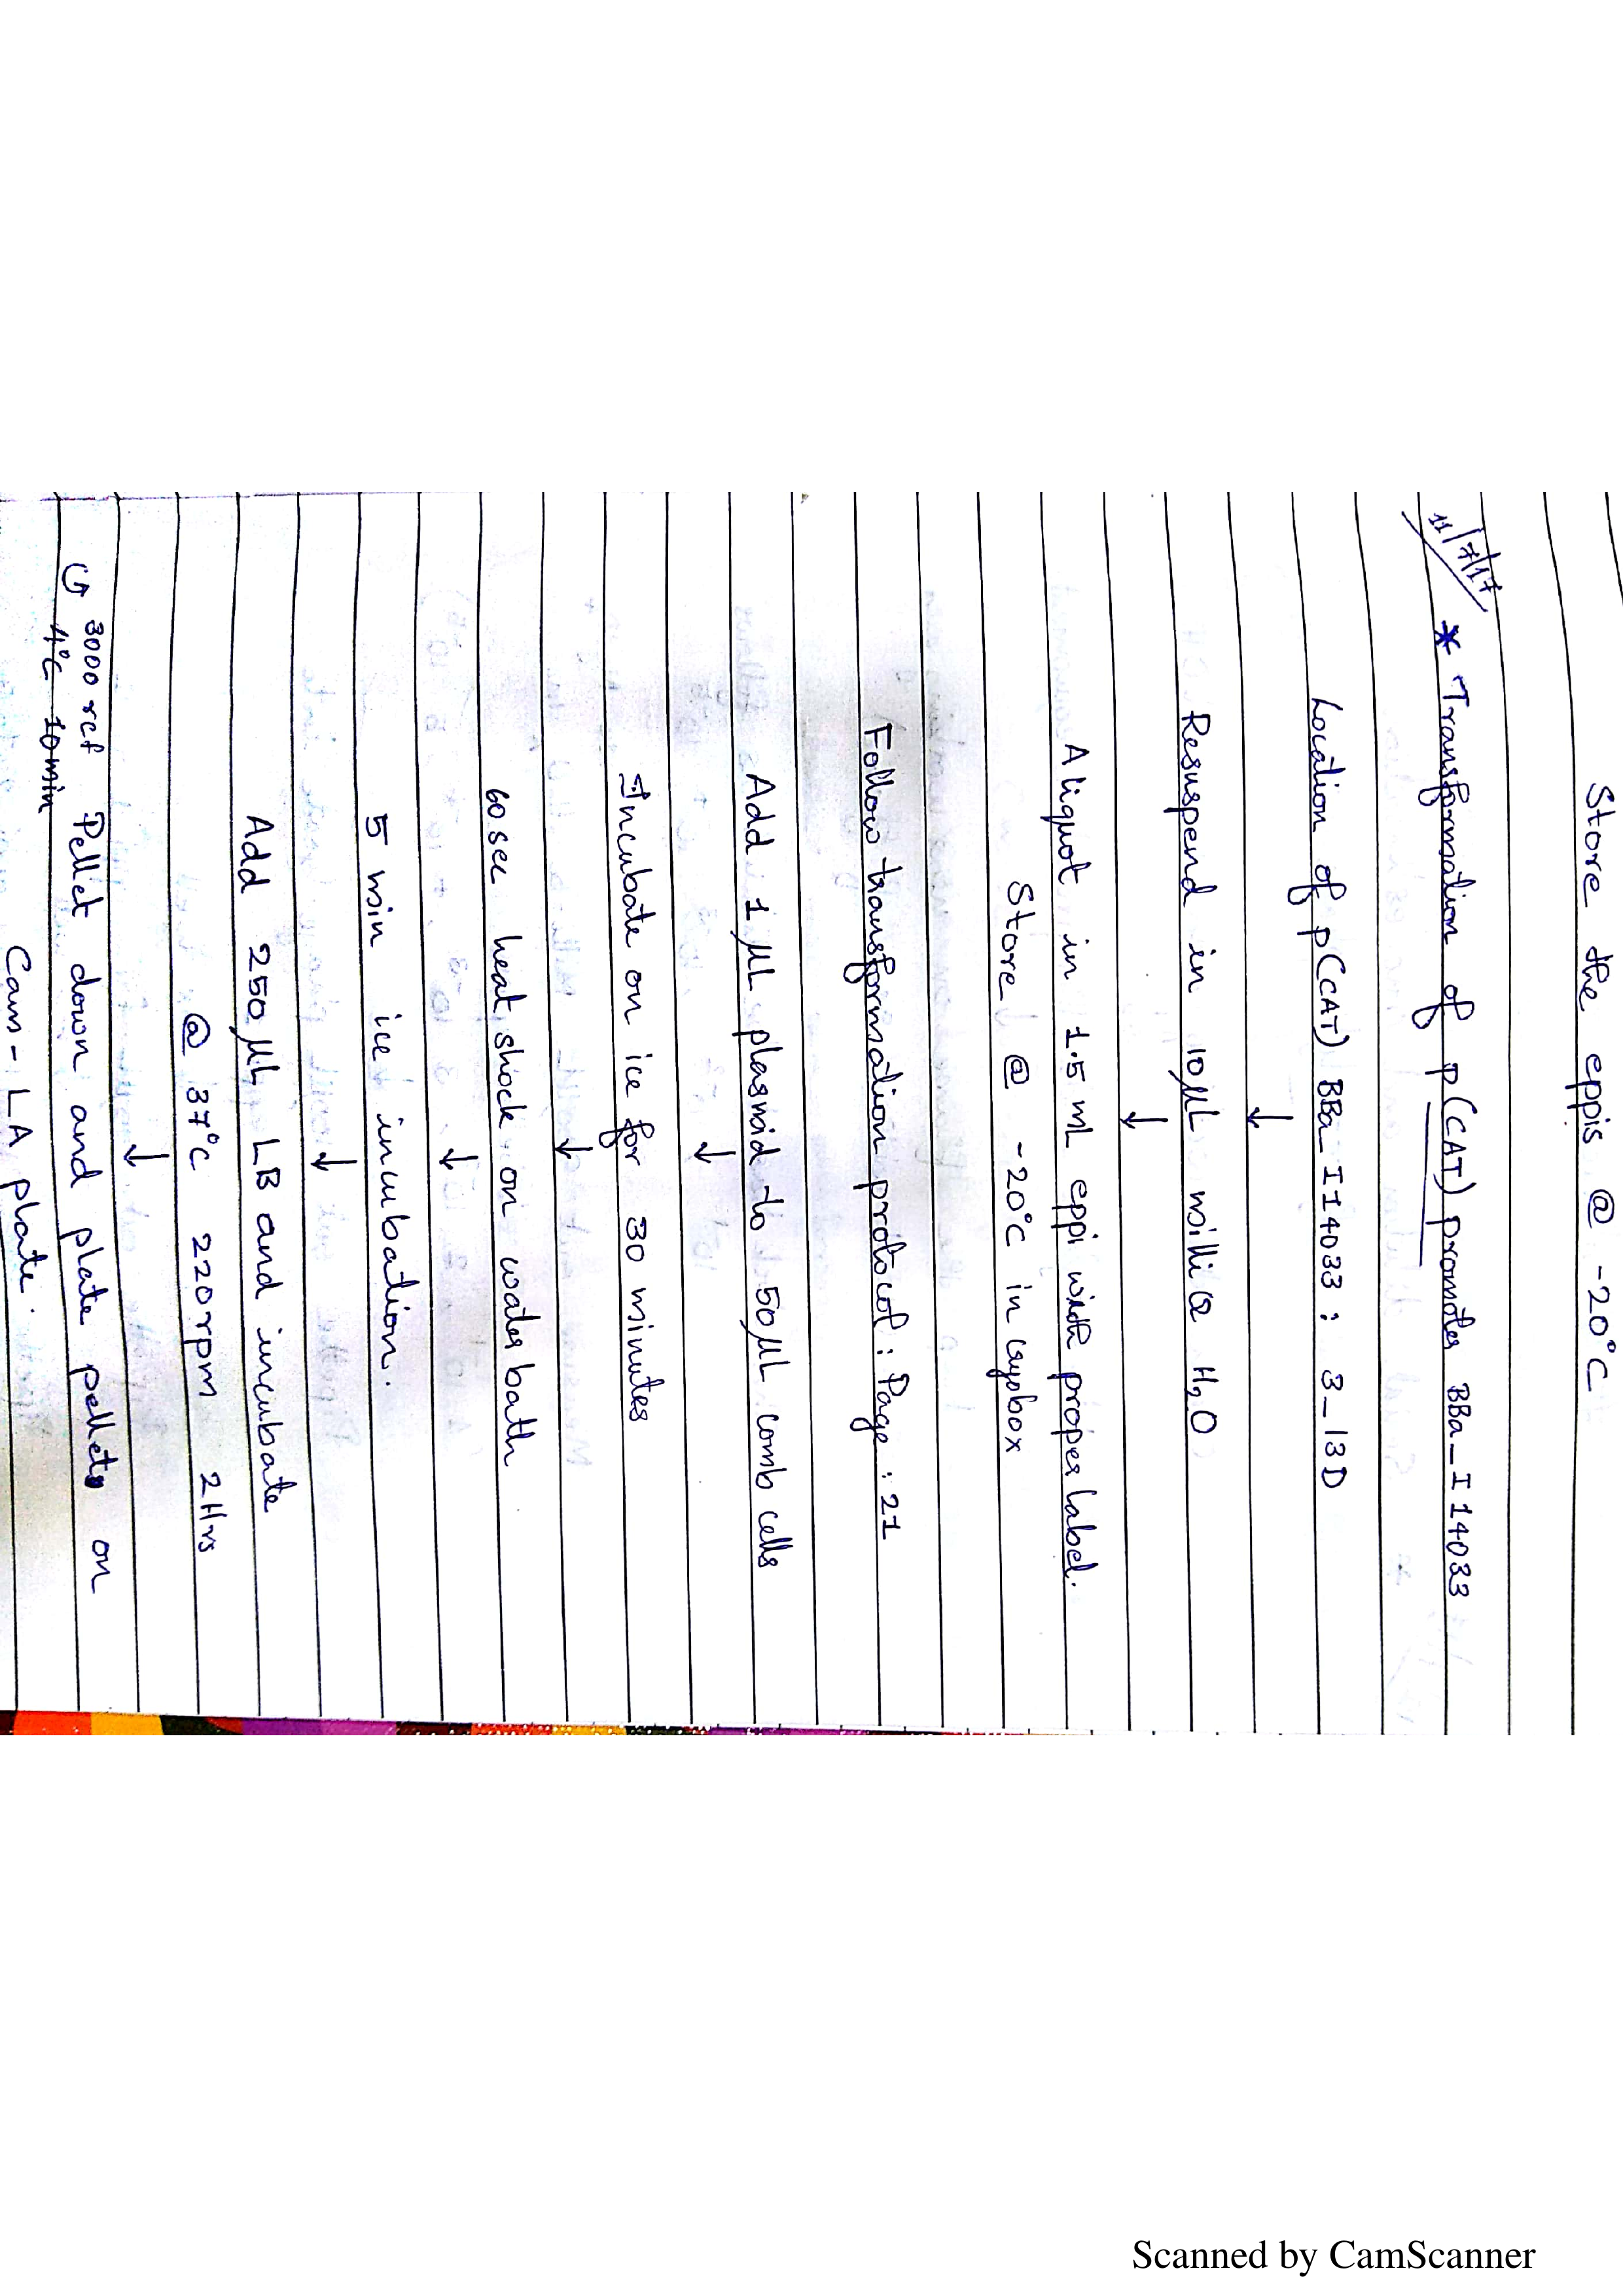 Store the eppis @ -20°C
11/7/17
* Transformation of p(CAT) promoter BBa_I14033
Location of p(CAT) BBa_I14033 : 3-13D
↓
Resuspend in 10µL milliQ H2O
↓
Aliquot in 1.5 mL eppi with proper label.
Store @ -20°C in cryobox
Follow transformation protocol : Page : 21
Add 1 µL plasmid to 50µL comb cells
↓
Incubate on ice for 30 minutes
↓
60 sec heat shock on water bath
↓
5 min ice incubation.
↓
Add 250 µL LB and incubate
@ 37°C 220rpm 2Hrs
↓
↪ 3000 rcf Pellet down and plate pellets on
4°C 10min
Cam-LA plate.
Scanned by CamScanner